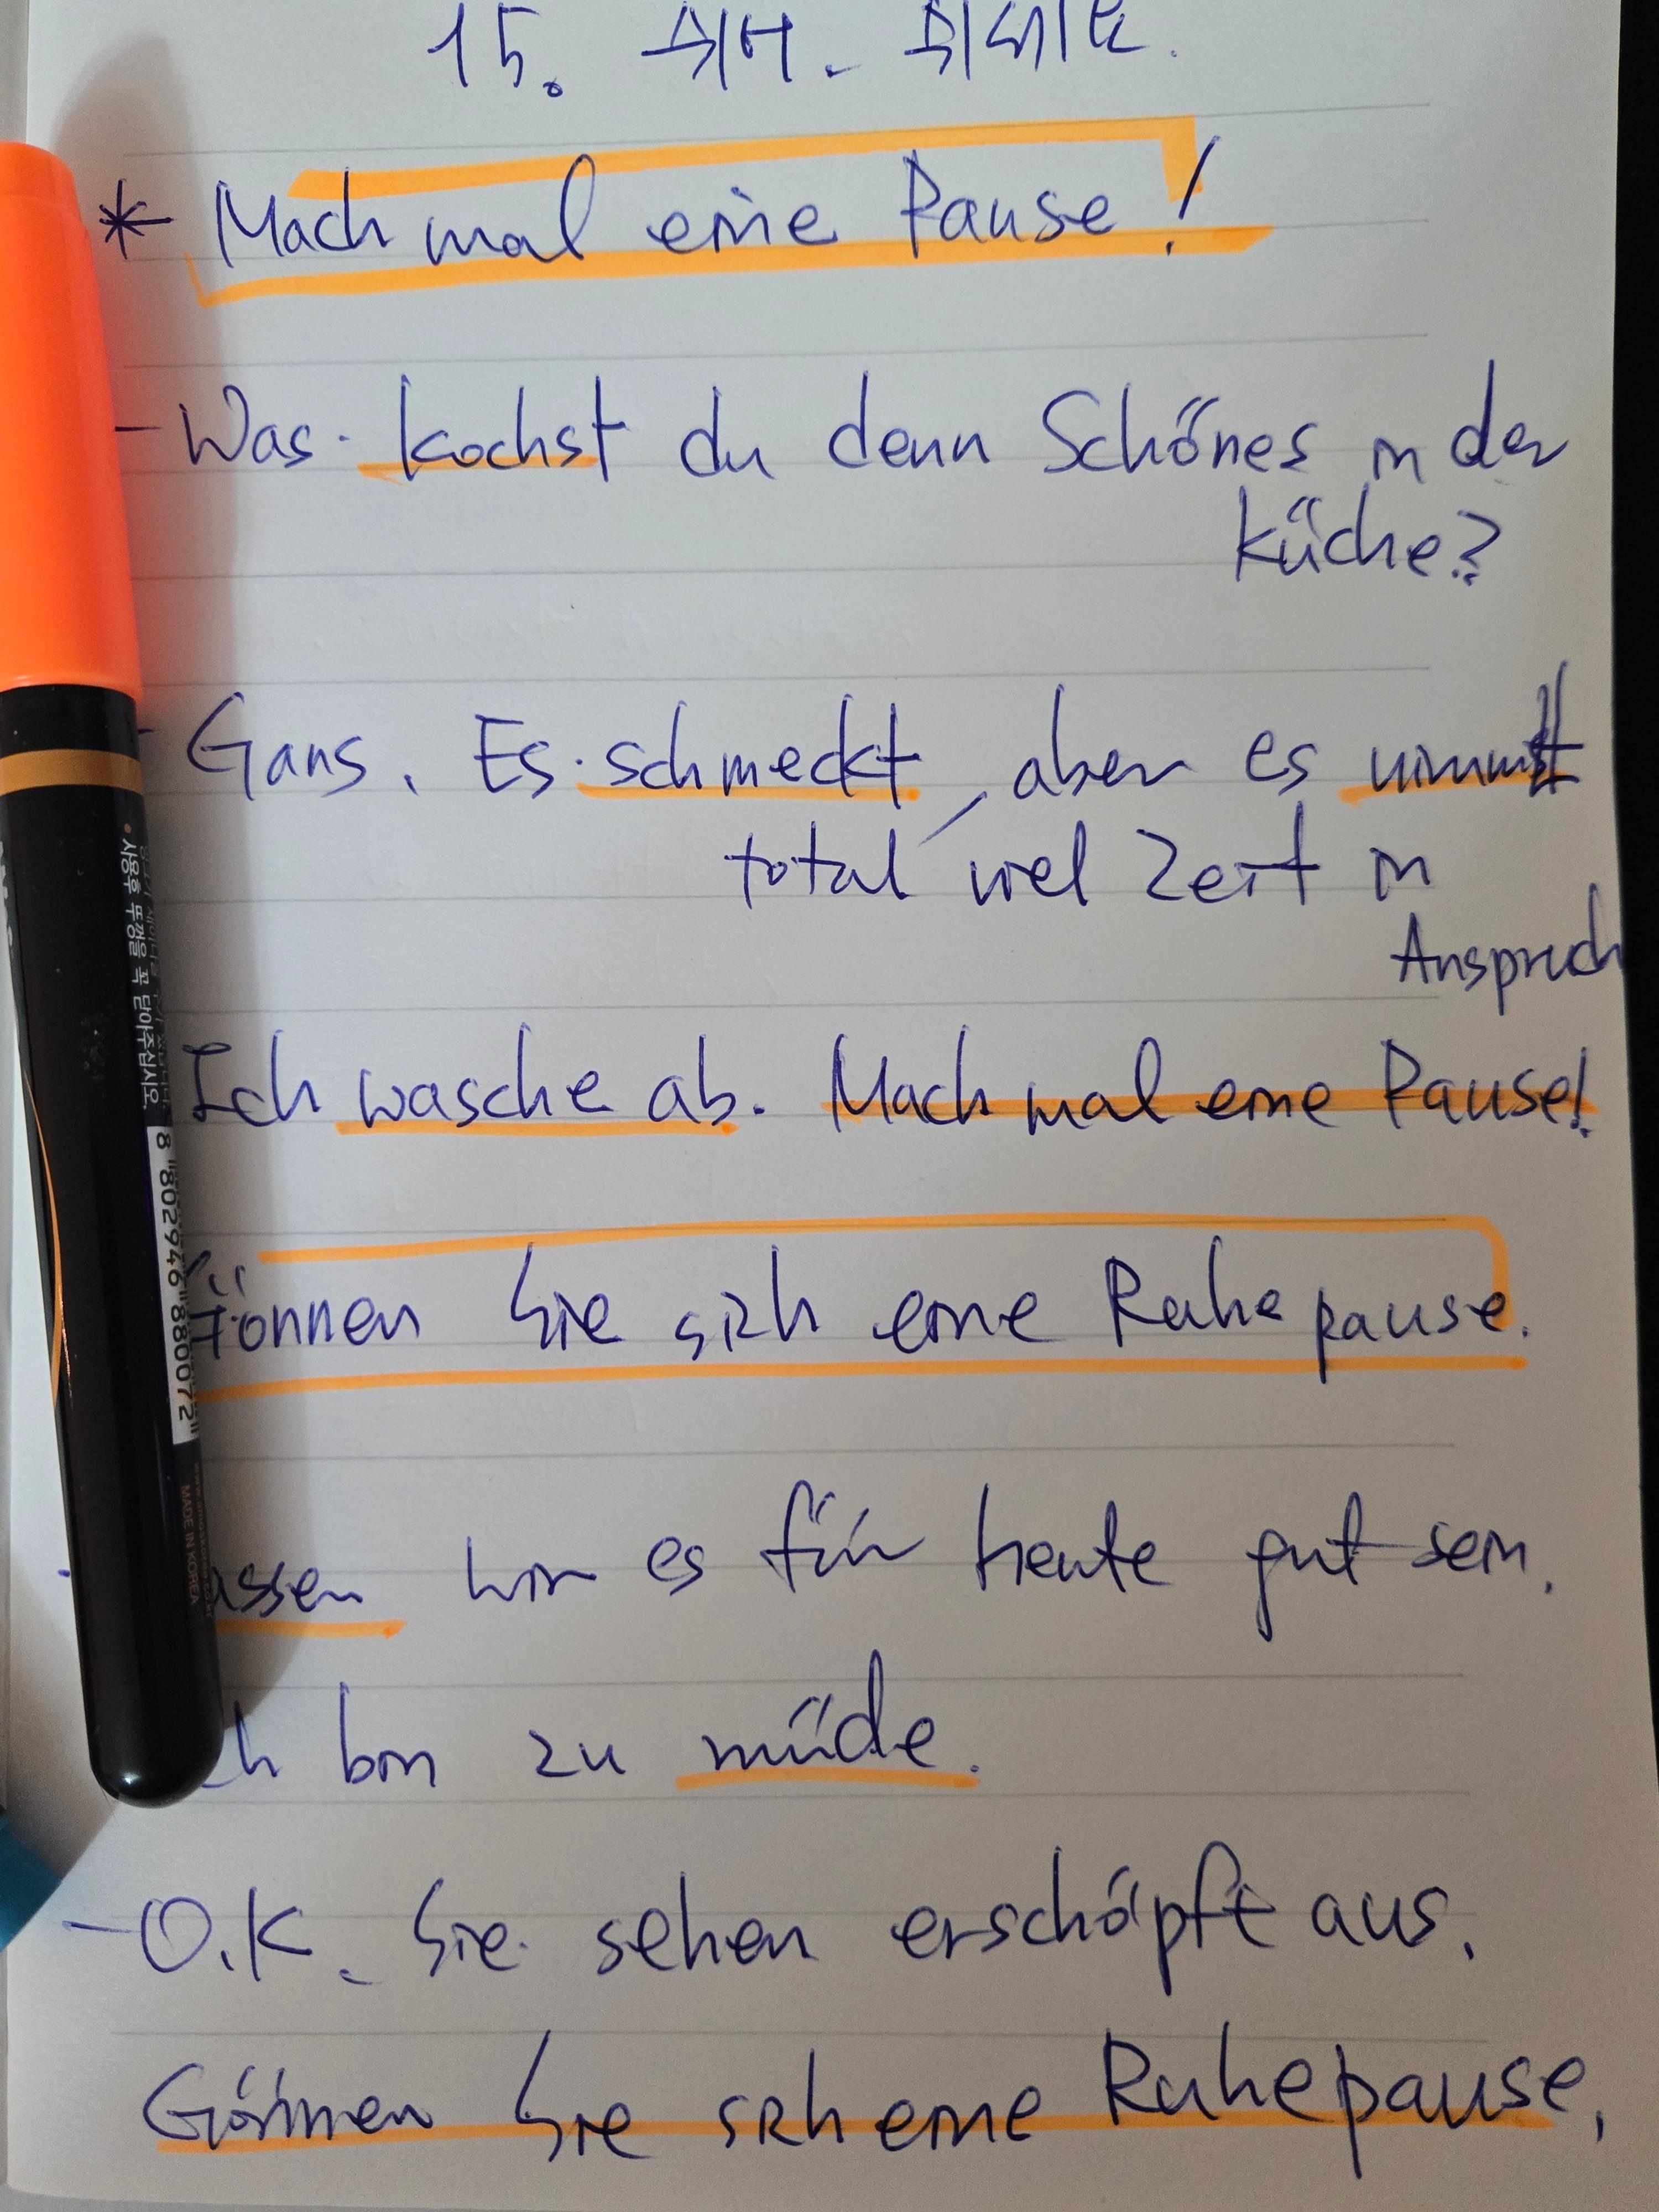 15. 수면. 휴식하다.
* Mach mal eine Pause!
- Was kochst du denn Schönes in der
Küche?
- Gans. Es schmeckt, aber es nimmt
total viel Zeit in
Anspruch
Ich wasche ab. Mach mal eine Pause!
Gönnen Sie sich eine Ruhepause.
assen wir es für heute gut sein.
ch bin zu müde.
- O.K. Sie sehen erschöpft aus.
Gönnen Sie sich eine Ruhepause.
사용후 뚜껑을 꼭 닫아주십시오.
8 802946 880072
MADE IN KOREA